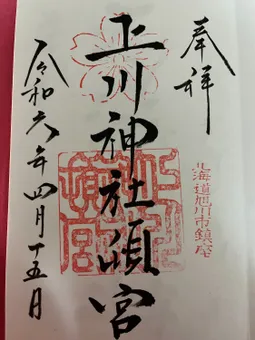 奉祥
北海道旭川市鎮座
上川神社頓宮
令和六年四月十五日